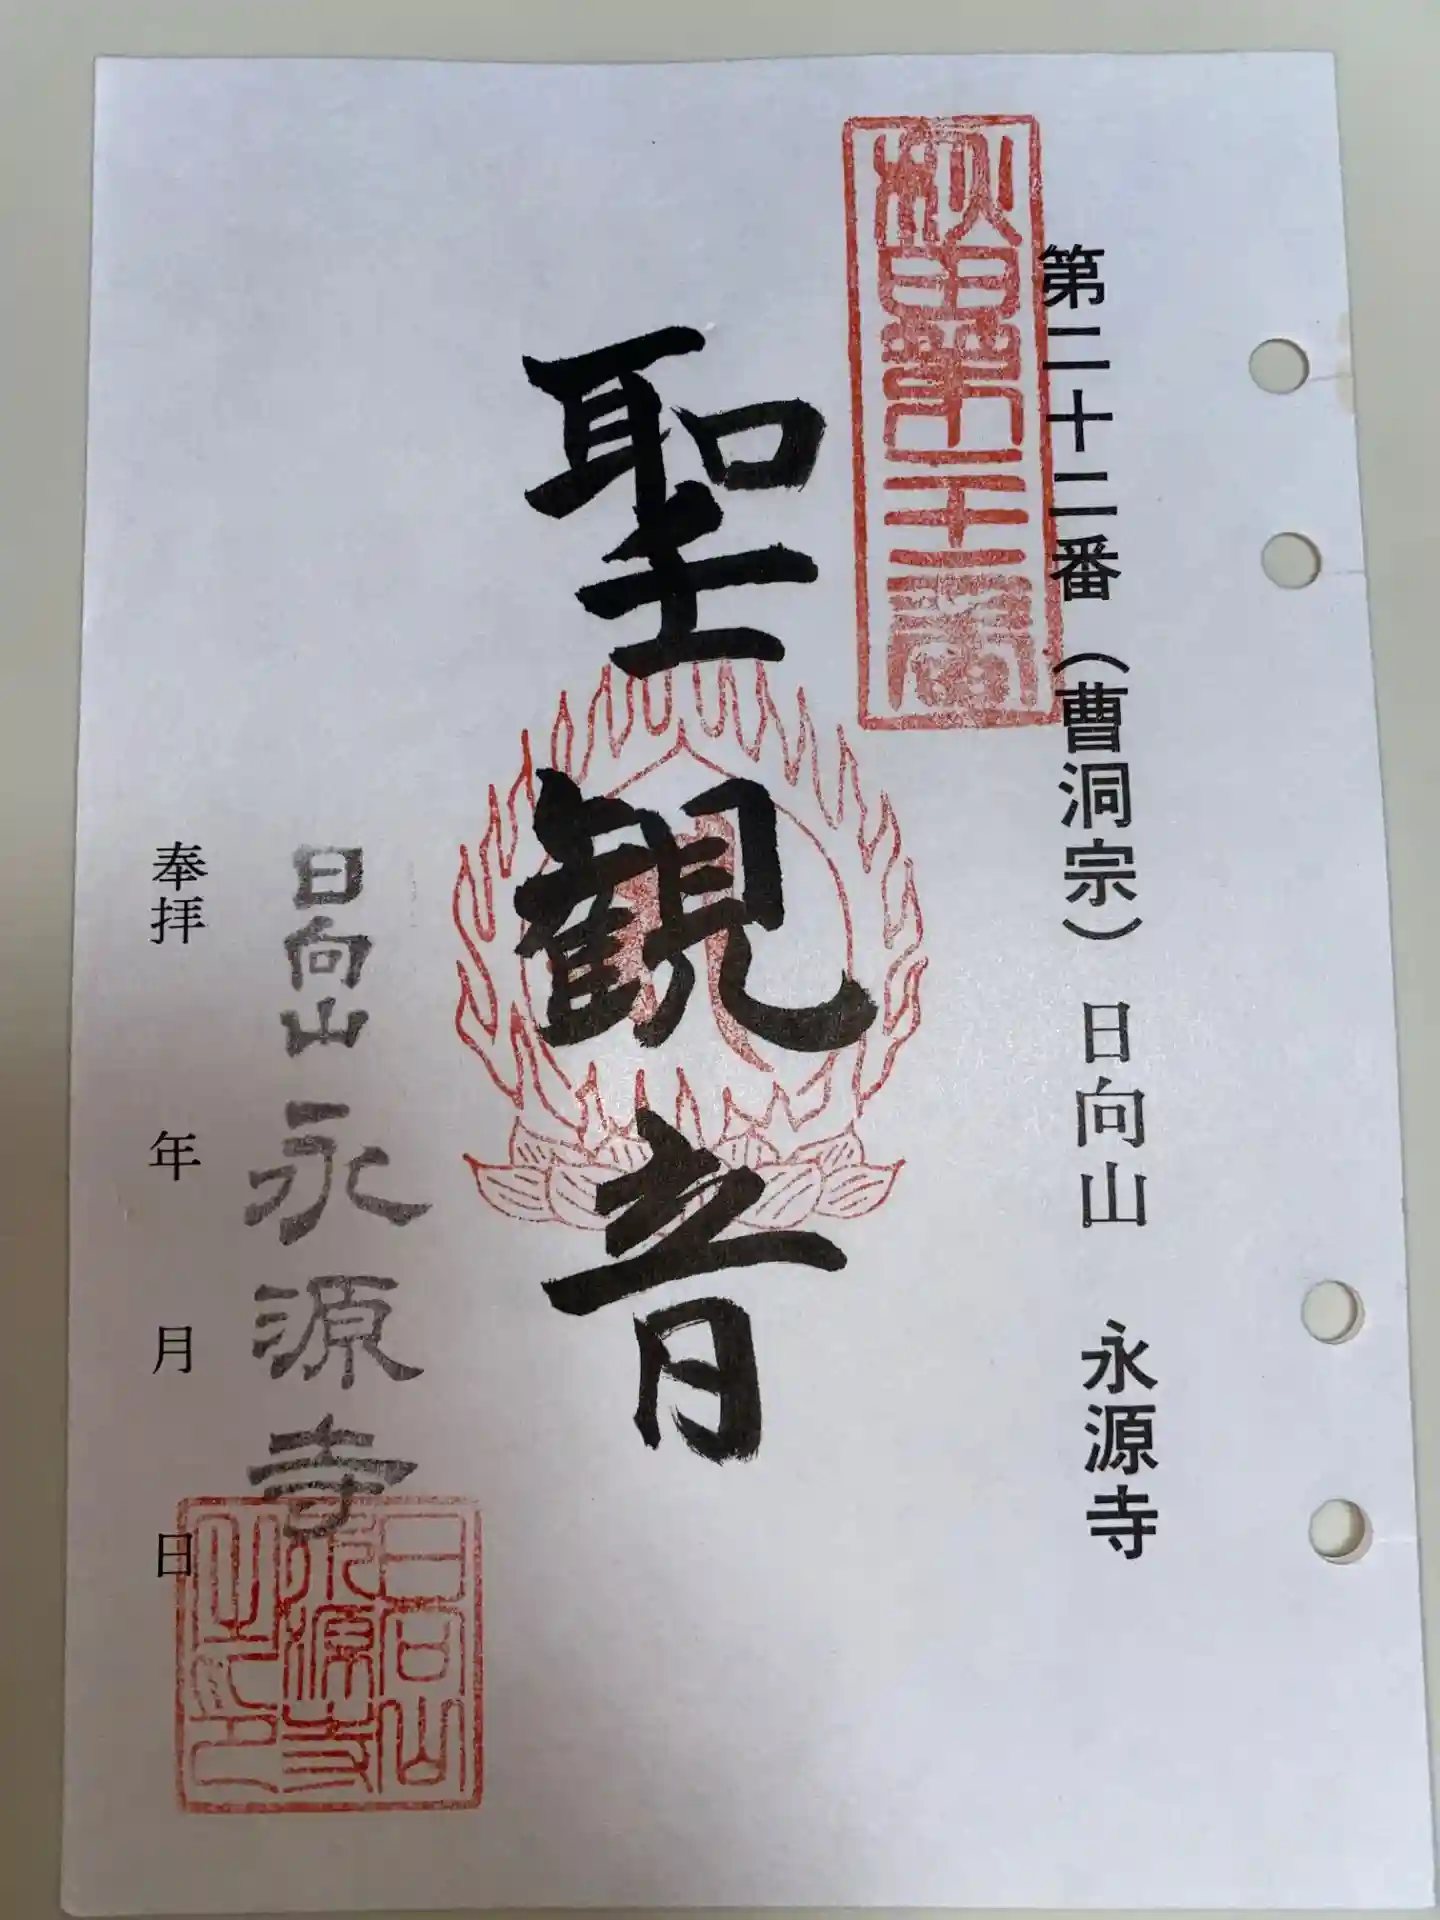 第二十二番（曹洞宗）日向山　永源寺
秋田第二十二番
聖観音
日向山 永源寺
日向山
永源寺
之印
奉拝　年　月　日